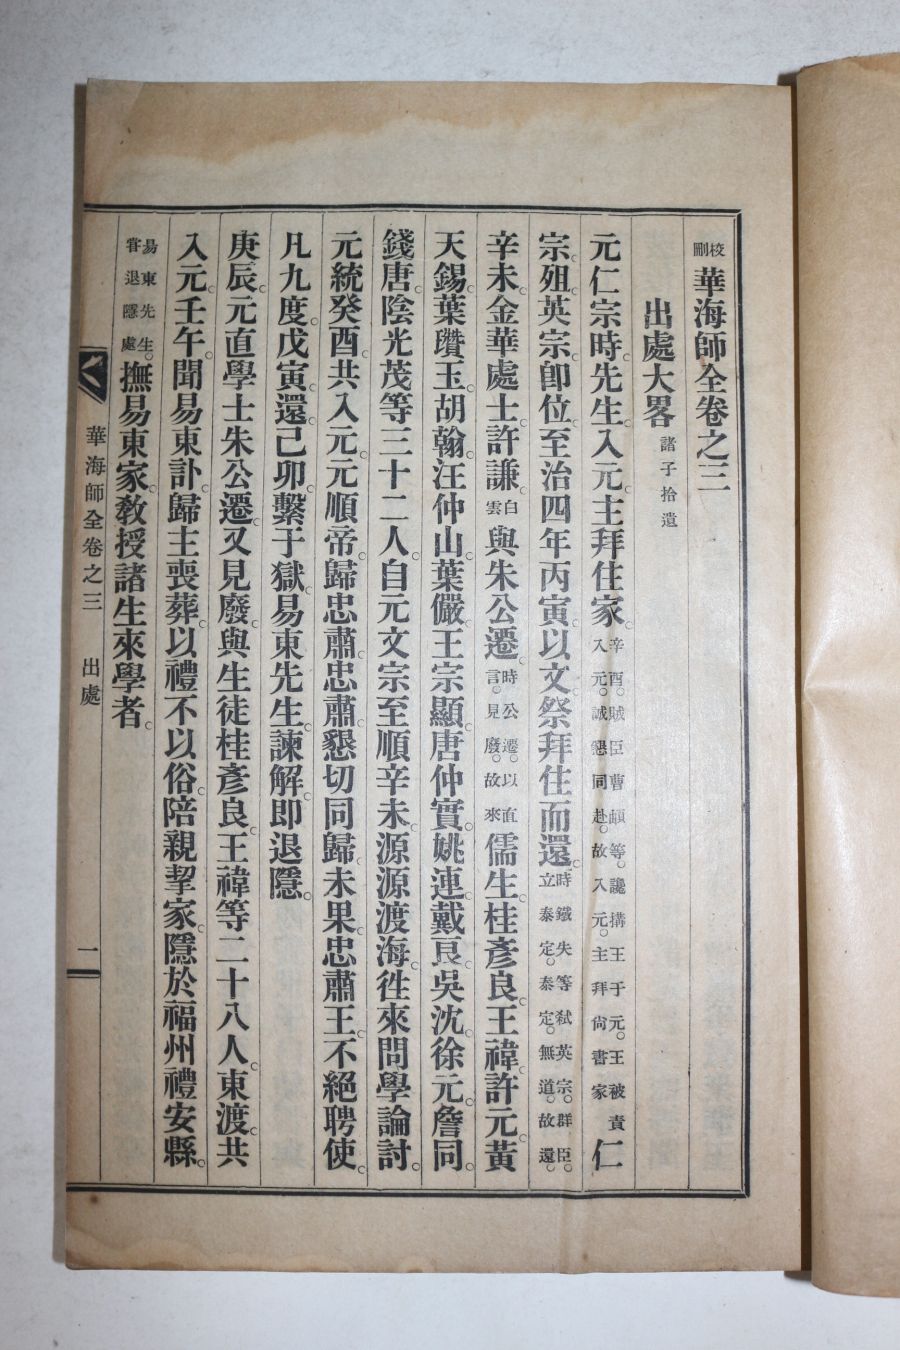 校刪華海師全卷之三
出處大畧 諸子拾遺
元仁宗時。先生入元。主拜住家。辛酉。賊臣曹頔等。讒搆王于元。王被責入元。誠懇同赴。故入元。主拜尙書家仁
宗殂。英宗卽位。至治四年丙寅。以文祭拜住而還。時鐵失等弒英宗。群臣。立泰定。泰定。無道。故還。
辛未。金華處士許謙白雲與朱公遷。時公遷。以直言。見廢。故來儒生桂彥良。王禕。許元。黃
天錫。葉瓚玉。胡翰。汪仲山。葉儼。王宗顯。唐仲實。姚連。戴良。吳沈。徐元。詹同。
錢唐。陰光茂等三十二人。自元文宗至順辛未。源源渡海。徃來問學論討。
元統癸酉。共入元。元順帝。歸忠肅。忠肅。懇切同歸。未果。忠肅王。不絕聘使。
凡九度。戊寅。還。己卯。繫于獄。易東先生。諫解。即退隱。
庚辰。元直學士朱公遷。又見廢。與生徒桂彥良。王禕等二十八人。東渡。共
入元。壬午。聞易東訃。歸主喪葬。以禮不以俗。陪親挈家。隱於福州禮安縣。
易東先生。嘗退隱處撫易東家。敎授諸生來學者。
華海師全卷之三 出處 一